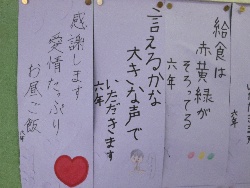 給食は
赤黄緑が
そろってる
六年
言えるかな
大きな声で
いただきます
六年
感謝します
愛情たっぷり
お昼ご飯
六年